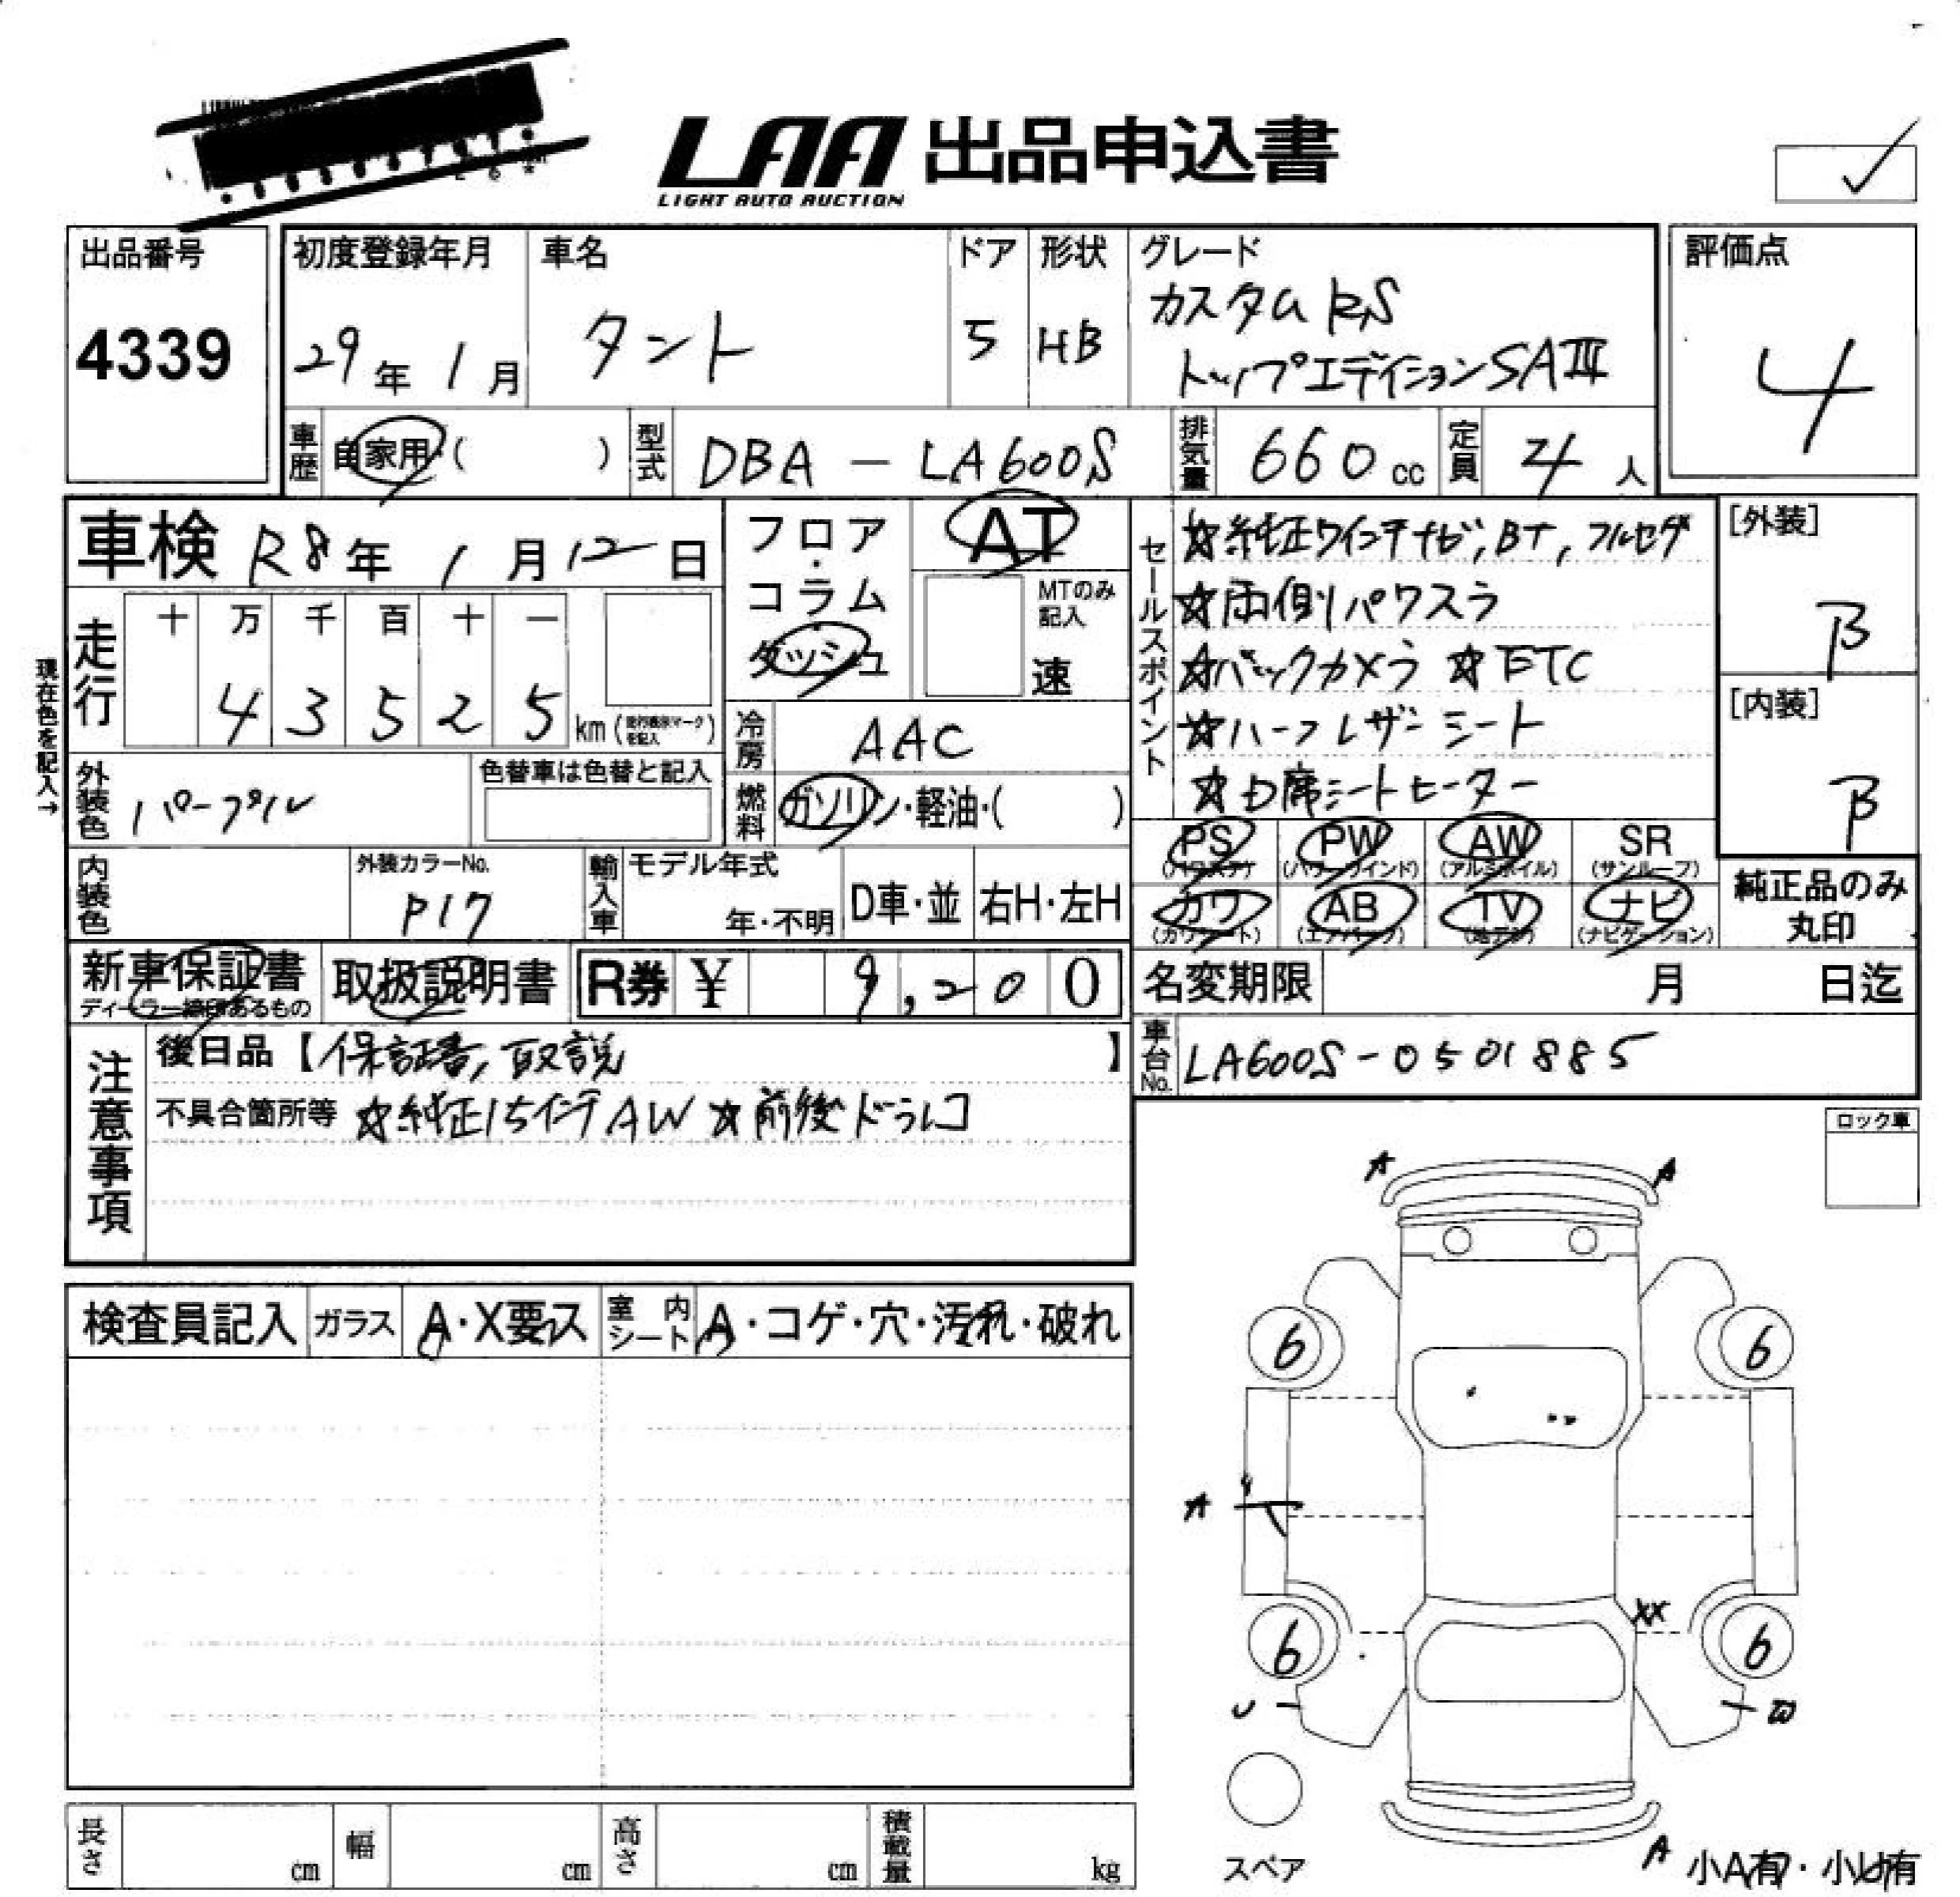 LAA 出品申込書
LIGHT AUTO AUCTION
出品番号
4339
初度登録年月
29年 1月
車名
タント
ドア
5
形状
HB
グレード
カスタムRS
トップエディションSAⅢ
評価点
4
車歴 自家用・( )
型式 DBA - LA600S
排気量 660 cc
定員 4 人
車検 R8年 1月12日
フロア・コラム
ダッシュ
AT
MTのみ記入
速
セールスポイント
☆純正9インチナビ, BT, フルセグ
☆両側パワスラ
☆バックカメラ ☆ETC
☆ハーフレザーシート
☆D席シートヒーター
[外装]
B
[内装]
B
現在色を記入→
走行
十 万 千 百 十 一
4 3 5 2 5 km (走行表示マークを記入)
冷房 AAC
外装色 パープル
色替車は色替と記入
燃料 ガソリン・軽油・( )
PS (パワステ) PW (パワーウインド) AW (アルミホイル) SR (サンルーフ)
カワ (カワシート) AB (エアバッグ) TV (地デジ) ナビ (ナビゲーション)
純正品のみ丸印
内装色
外装カラーNo.
P17
輸入車
モデル年式
年・不明
D車・並
右H・左H
新車保証書
ディーラー線印あるもの
取扱説明書
R券 ¥ 9,200
名変期限 月 日迄
注意事項
後日品【保証書, 取説】
不具合箇所等 ☆純正15インチAW ☆前後ドラレコ
車台No. LA600S-0501885
ロック車
検査員記入
ガラス A・X要ス
室内シート A・コゲ・穴・汚れ・破れ
A A
6 6
A
XX
6 6
U W
スペア
A 小A有・小U有
長さ cm
幅 cm
高さ cm
積載量 kg